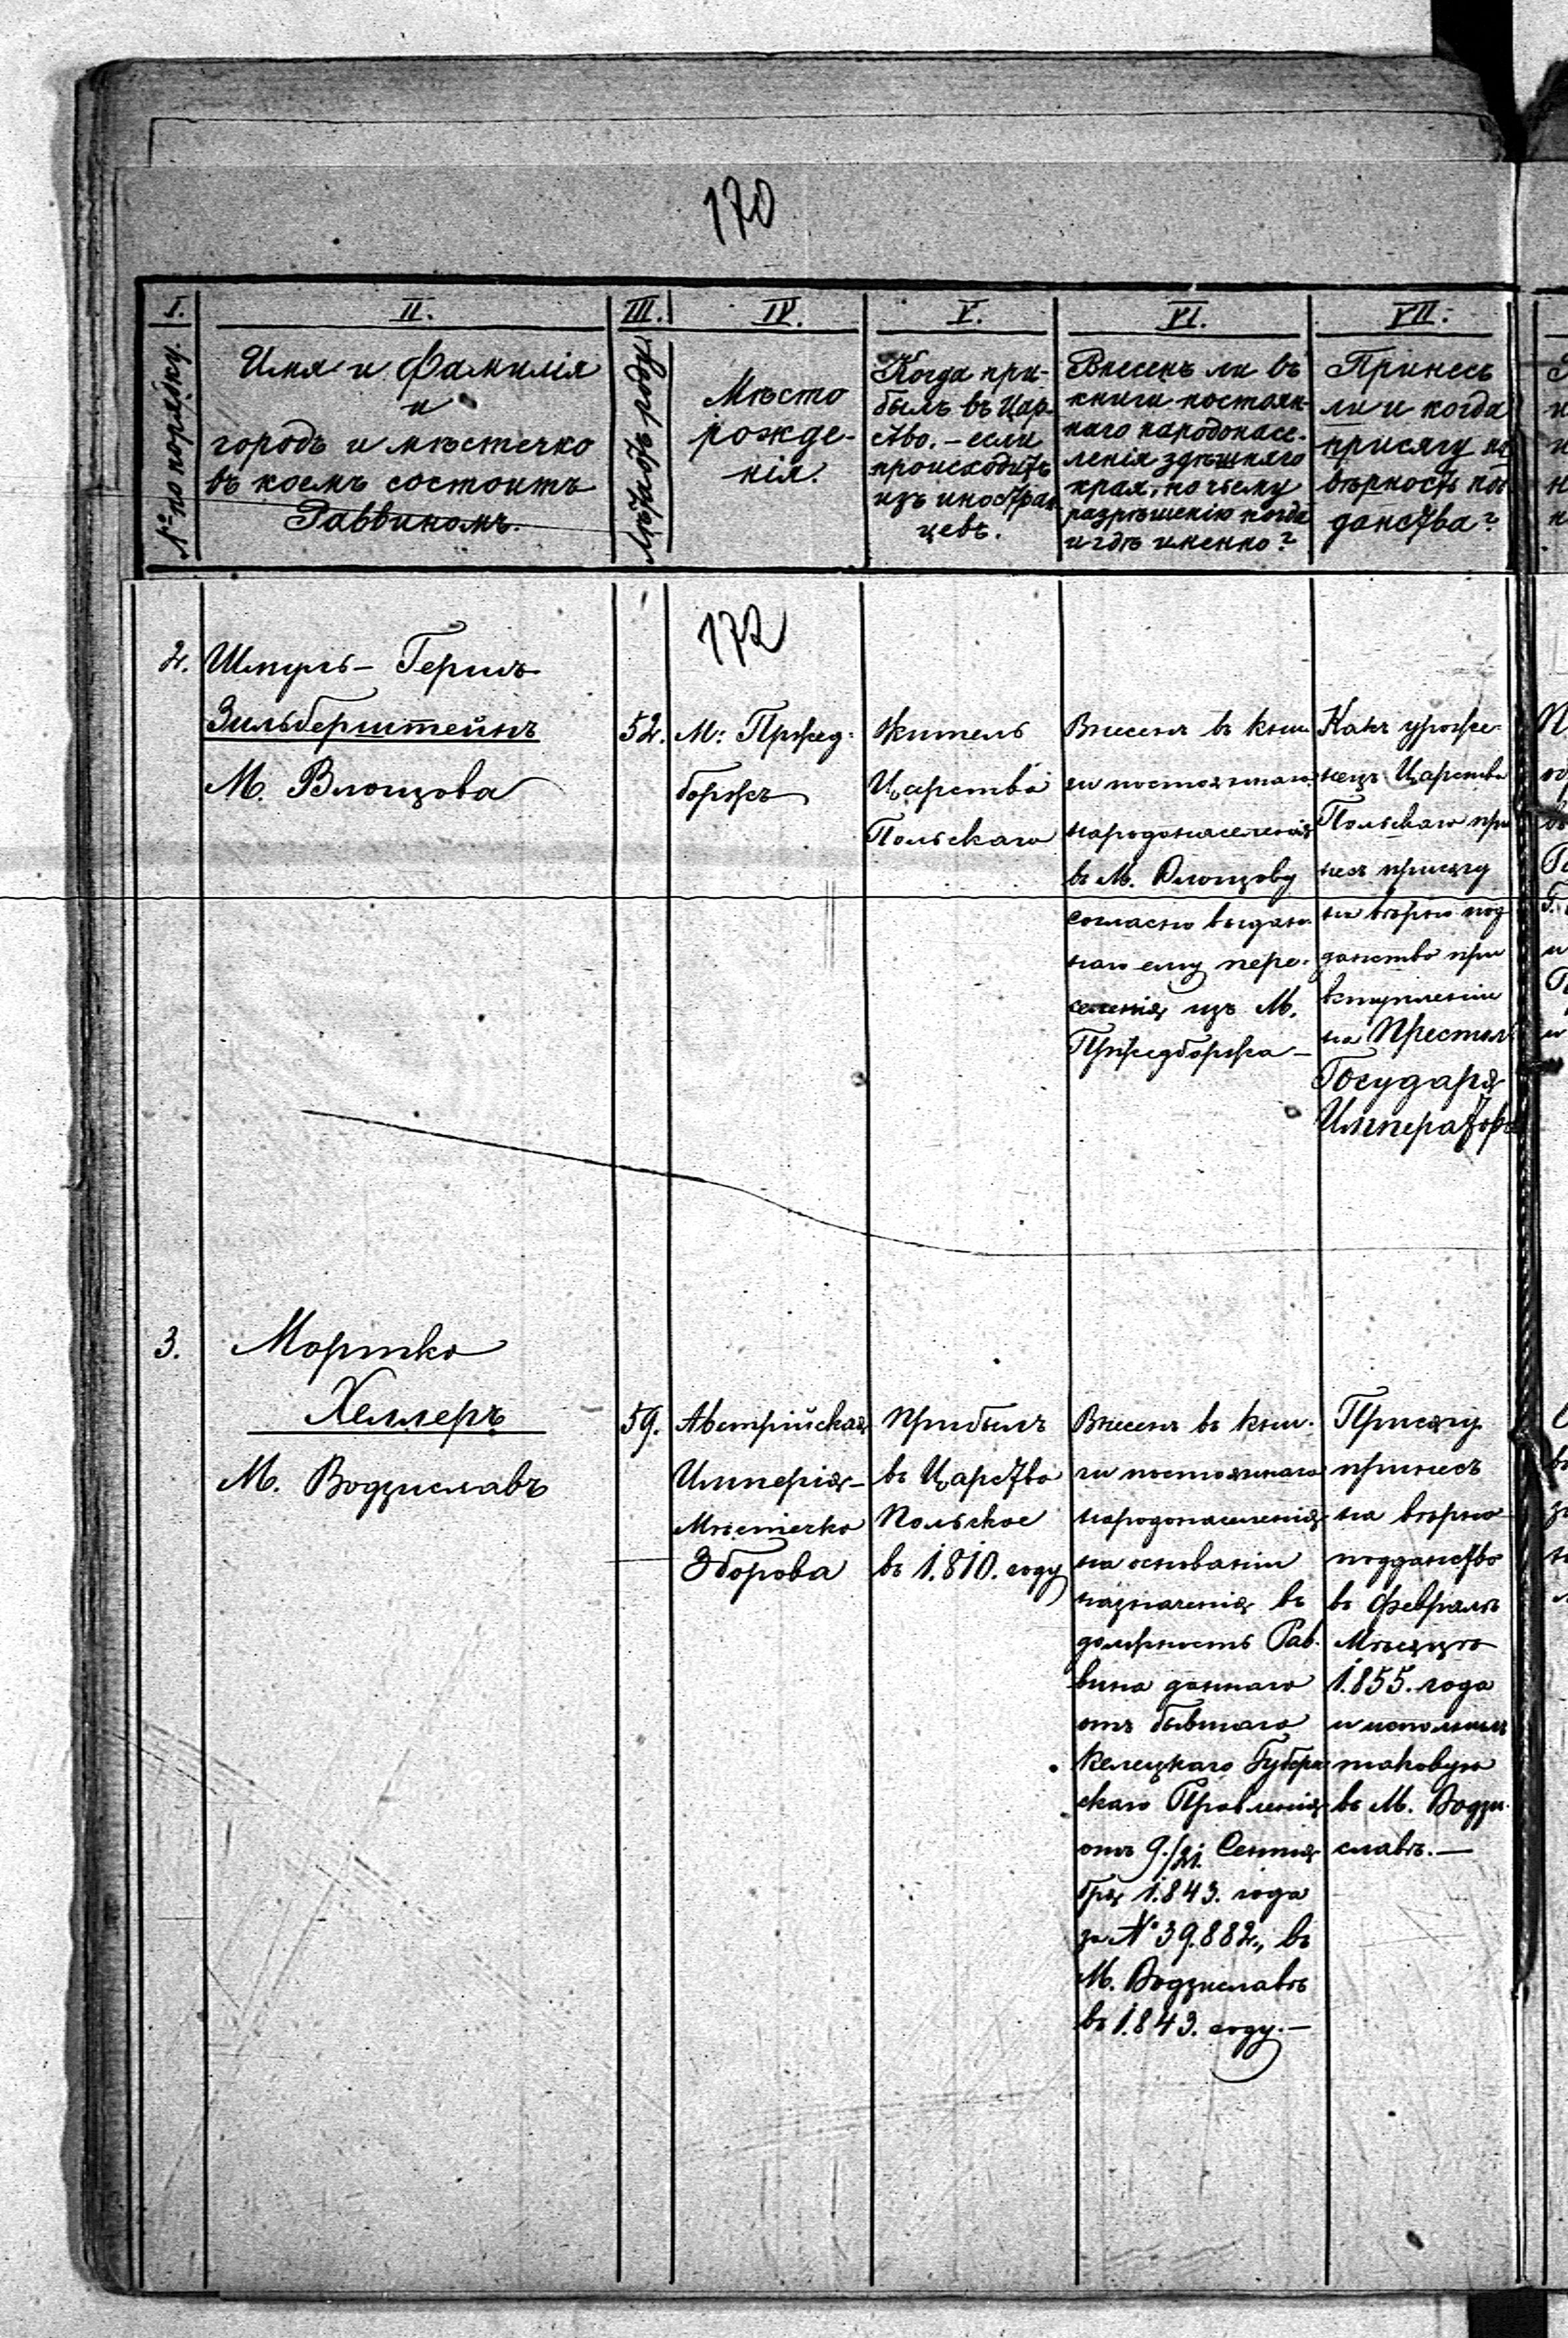 170
I.
№ по порядку.
II.
Имя и Фамилія
и
городъ и мѣстечко
въ коемъ состоитъ
Раввиномъ.
III.
Сколько лѣтъ
IV.
Мѣсто
рожде-
нія.
V.
Когда при-
былъ въ Цар-
ство. – если
происходитъ
изъ иностран
цевъ.
VI.
Внесенъ ли въ
книги постоян-
наго народонасе-
ленія здѣшняго
края, по чьему
разрѣшенію когда
и гдѣ именно?
VII.
Принесъ
ли и когда
присягу на
вѣрность под
данства?
172
2.
Шмуль – Гершъ
Зильберштейнъ
М. Влощова
52.
М: Пржед-
боржъ
Житель
Царства
Польскаго
Внесенъ въ кни
ги постояннаго
народонаселенія
въ М. Влощову
согласно выдан
наго ему пере-
селенія изъ М.
Пржедборжа –
Какъ уроже-
нецъ Царства
Польскаго при
несъ присягу
на вѣрно под
данство при
вступленіи
на Престолъ
Государя
Императора
3.
Моритко
Хеллеръ
М. Водзиславъ
59.
Австрійская
Имперія –
Мѣстечко
Зборова
Прибылъ
въ Царство
Польское
въ 1.810. году
Внесенъ въ кни-
ги постояннаго
народонаселенія
на основаніи
назначенія въ
должность Рав-
вина даннаго
отъ бывшаго
Келецкаго Губерн
скаго Правленія
отъ 9./21. Сентя
бря 1.843. года
за № 39.882., въ
М. Водзиславѣ
въ 1.843. году. –
Присягу
принесъ
на вѣрно
подданство
въ Февралѣ
Мѣсяцѣ
1.855. года
и исполнилъ
таковую
въ М. Водзи-
славѣ. –